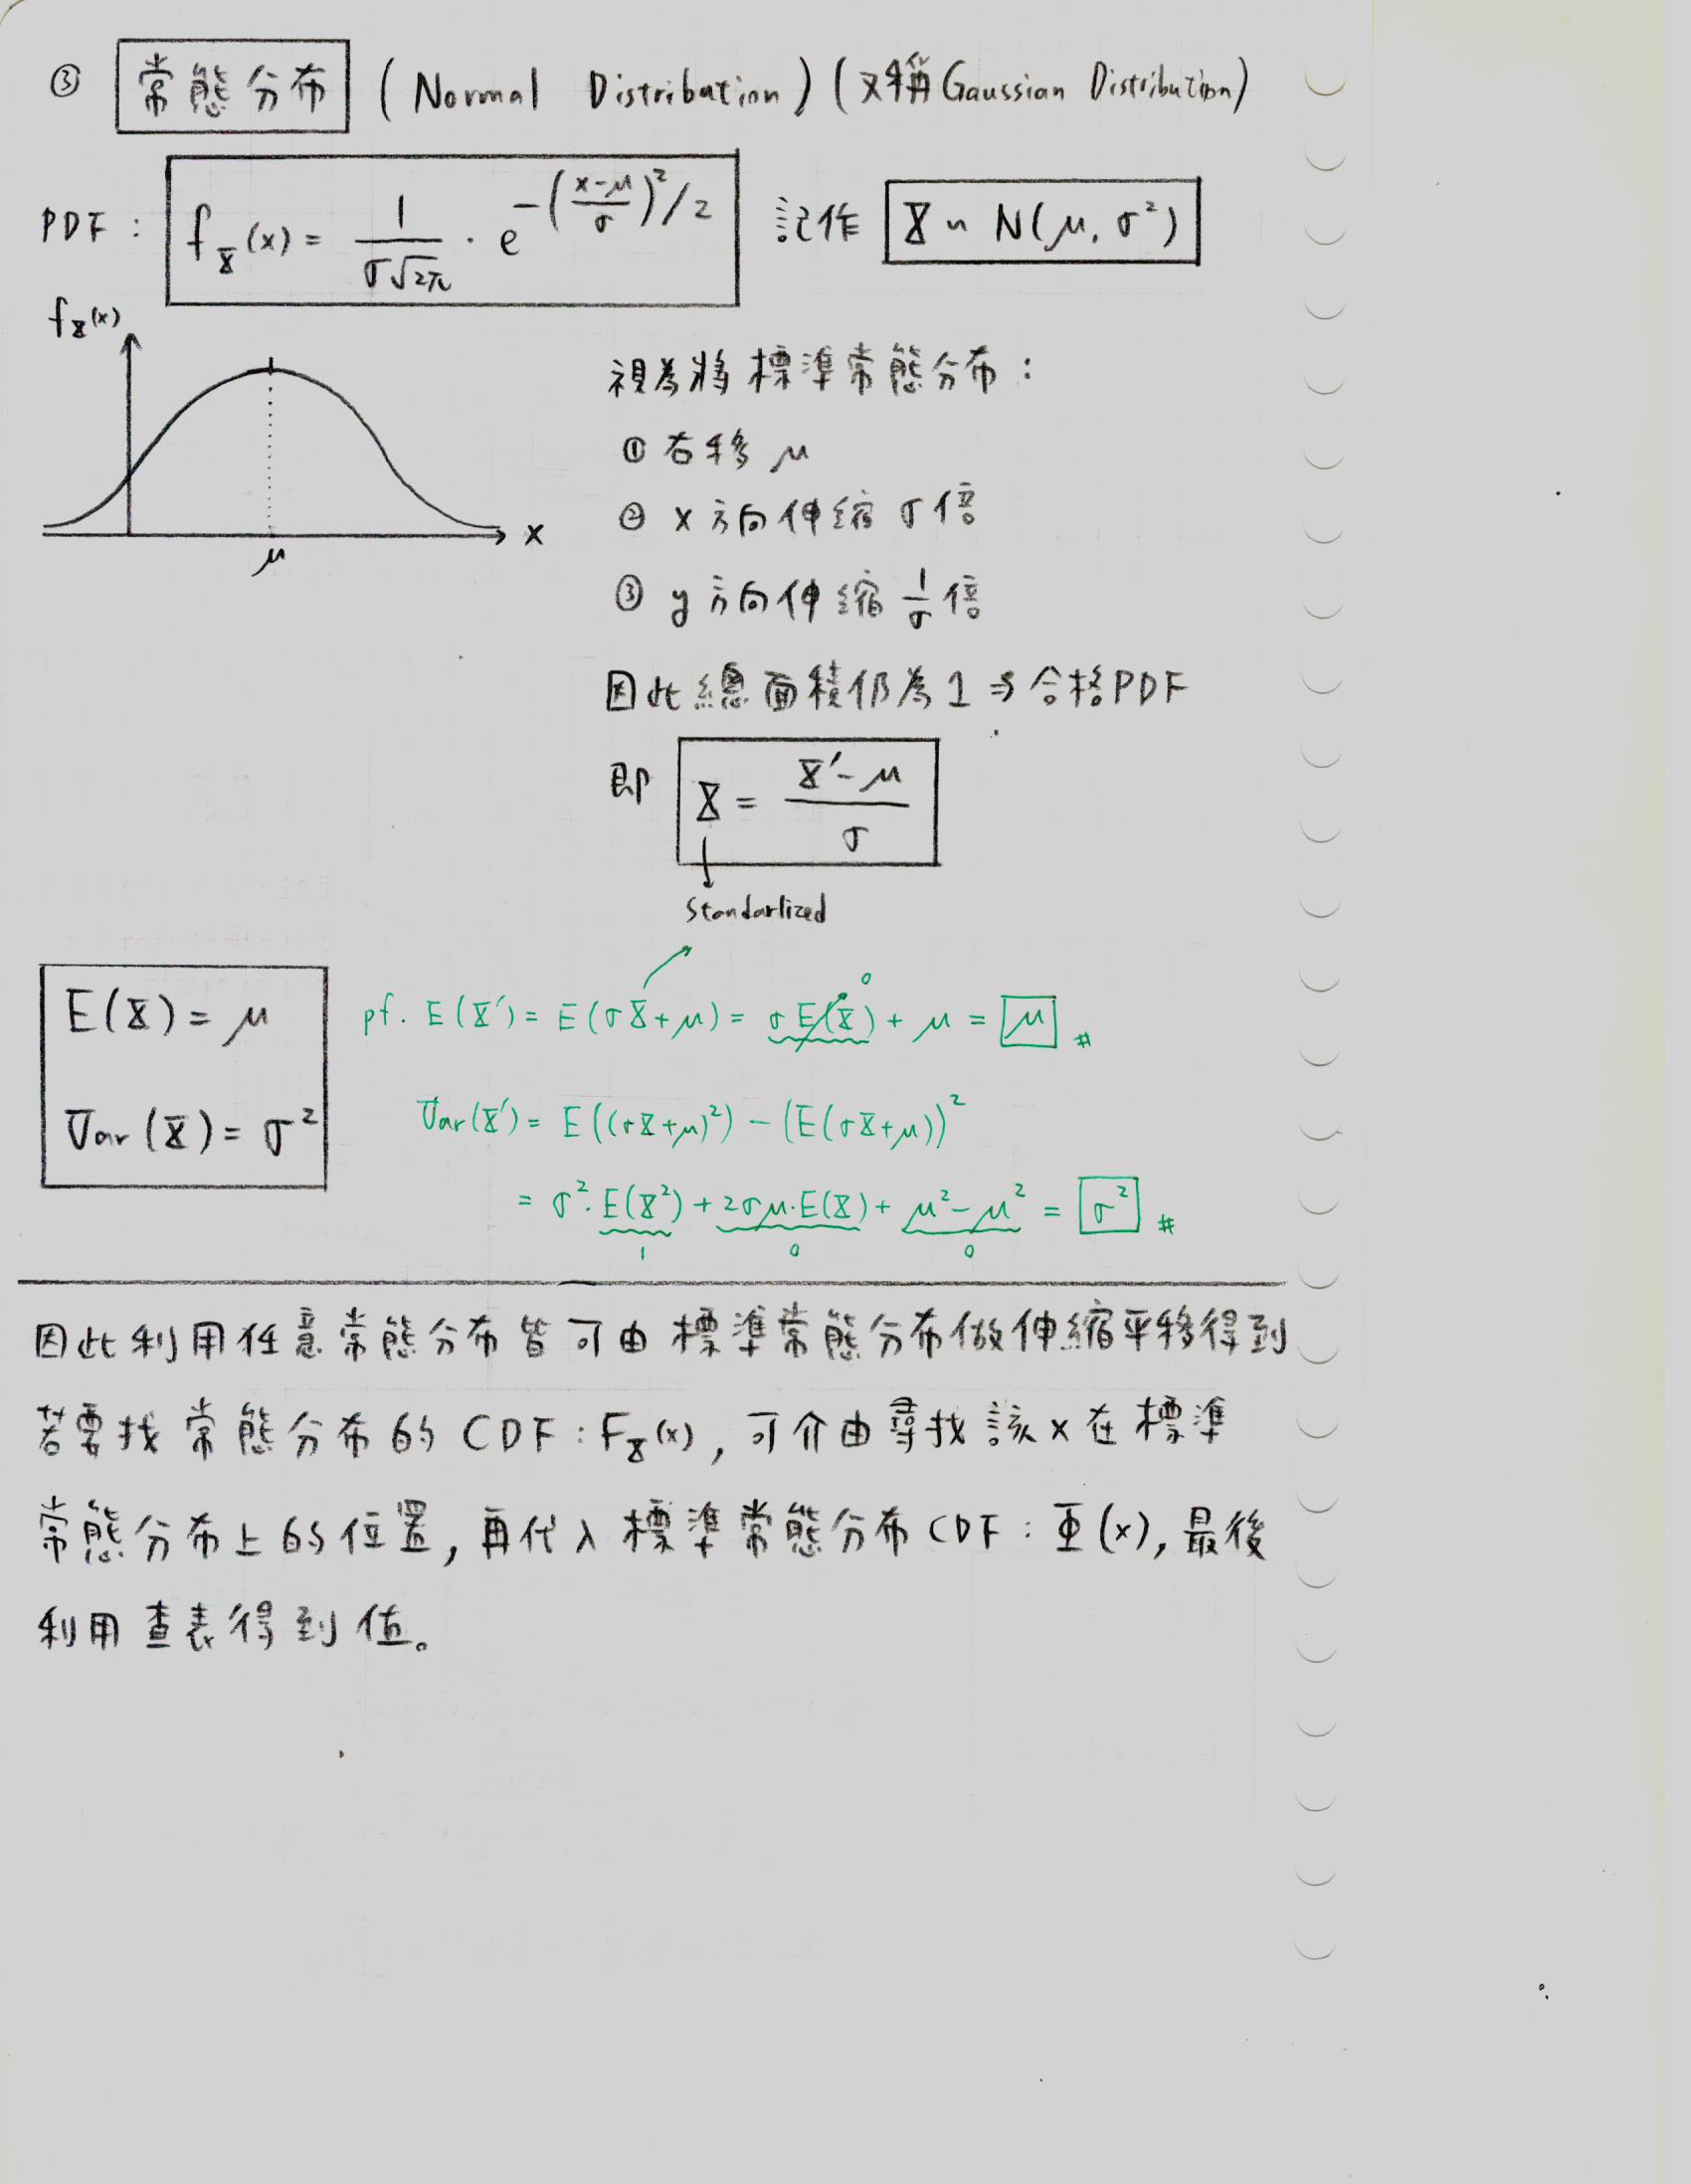 ③ 常態分布 (Normal Distribution) (又稱Gaussian Distribution)
PDF : f_X(x) = 1/(σ√2π) · e^(-((x-μ)/σ)²/2) 記作 X ~ N(μ, σ²)
f_X(x)
x
μ
視為將標準常態分布:
① 右移 μ
② x 方向伸縮 σ 倍
③ y 方向伸縮 1/σ 倍
因此總面積仍為1 ⇒ 合格PDF
即 X = (X'-μ)/σ
Standarlized
E(X) = μ
pf. E(X') = E(σX+μ) = σE(X) + μ = μ #
0
Var(X) = σ²
Var(X') = E((σX+μ)²) - (E(σX+μ))²
= σ²·E(X²) + 2σμ·E(X) + μ²-μ² = σ² #
1 0 0
因此利用任意常態分布皆可由標準常態分布做伸縮平移得到
若要找常態分布的CDF:F_X(x), 可介由尋找該x在標準
常態分布上的位置, 再代入標準常態分布CDF:Φ(x), 最後
利用查表得到值。